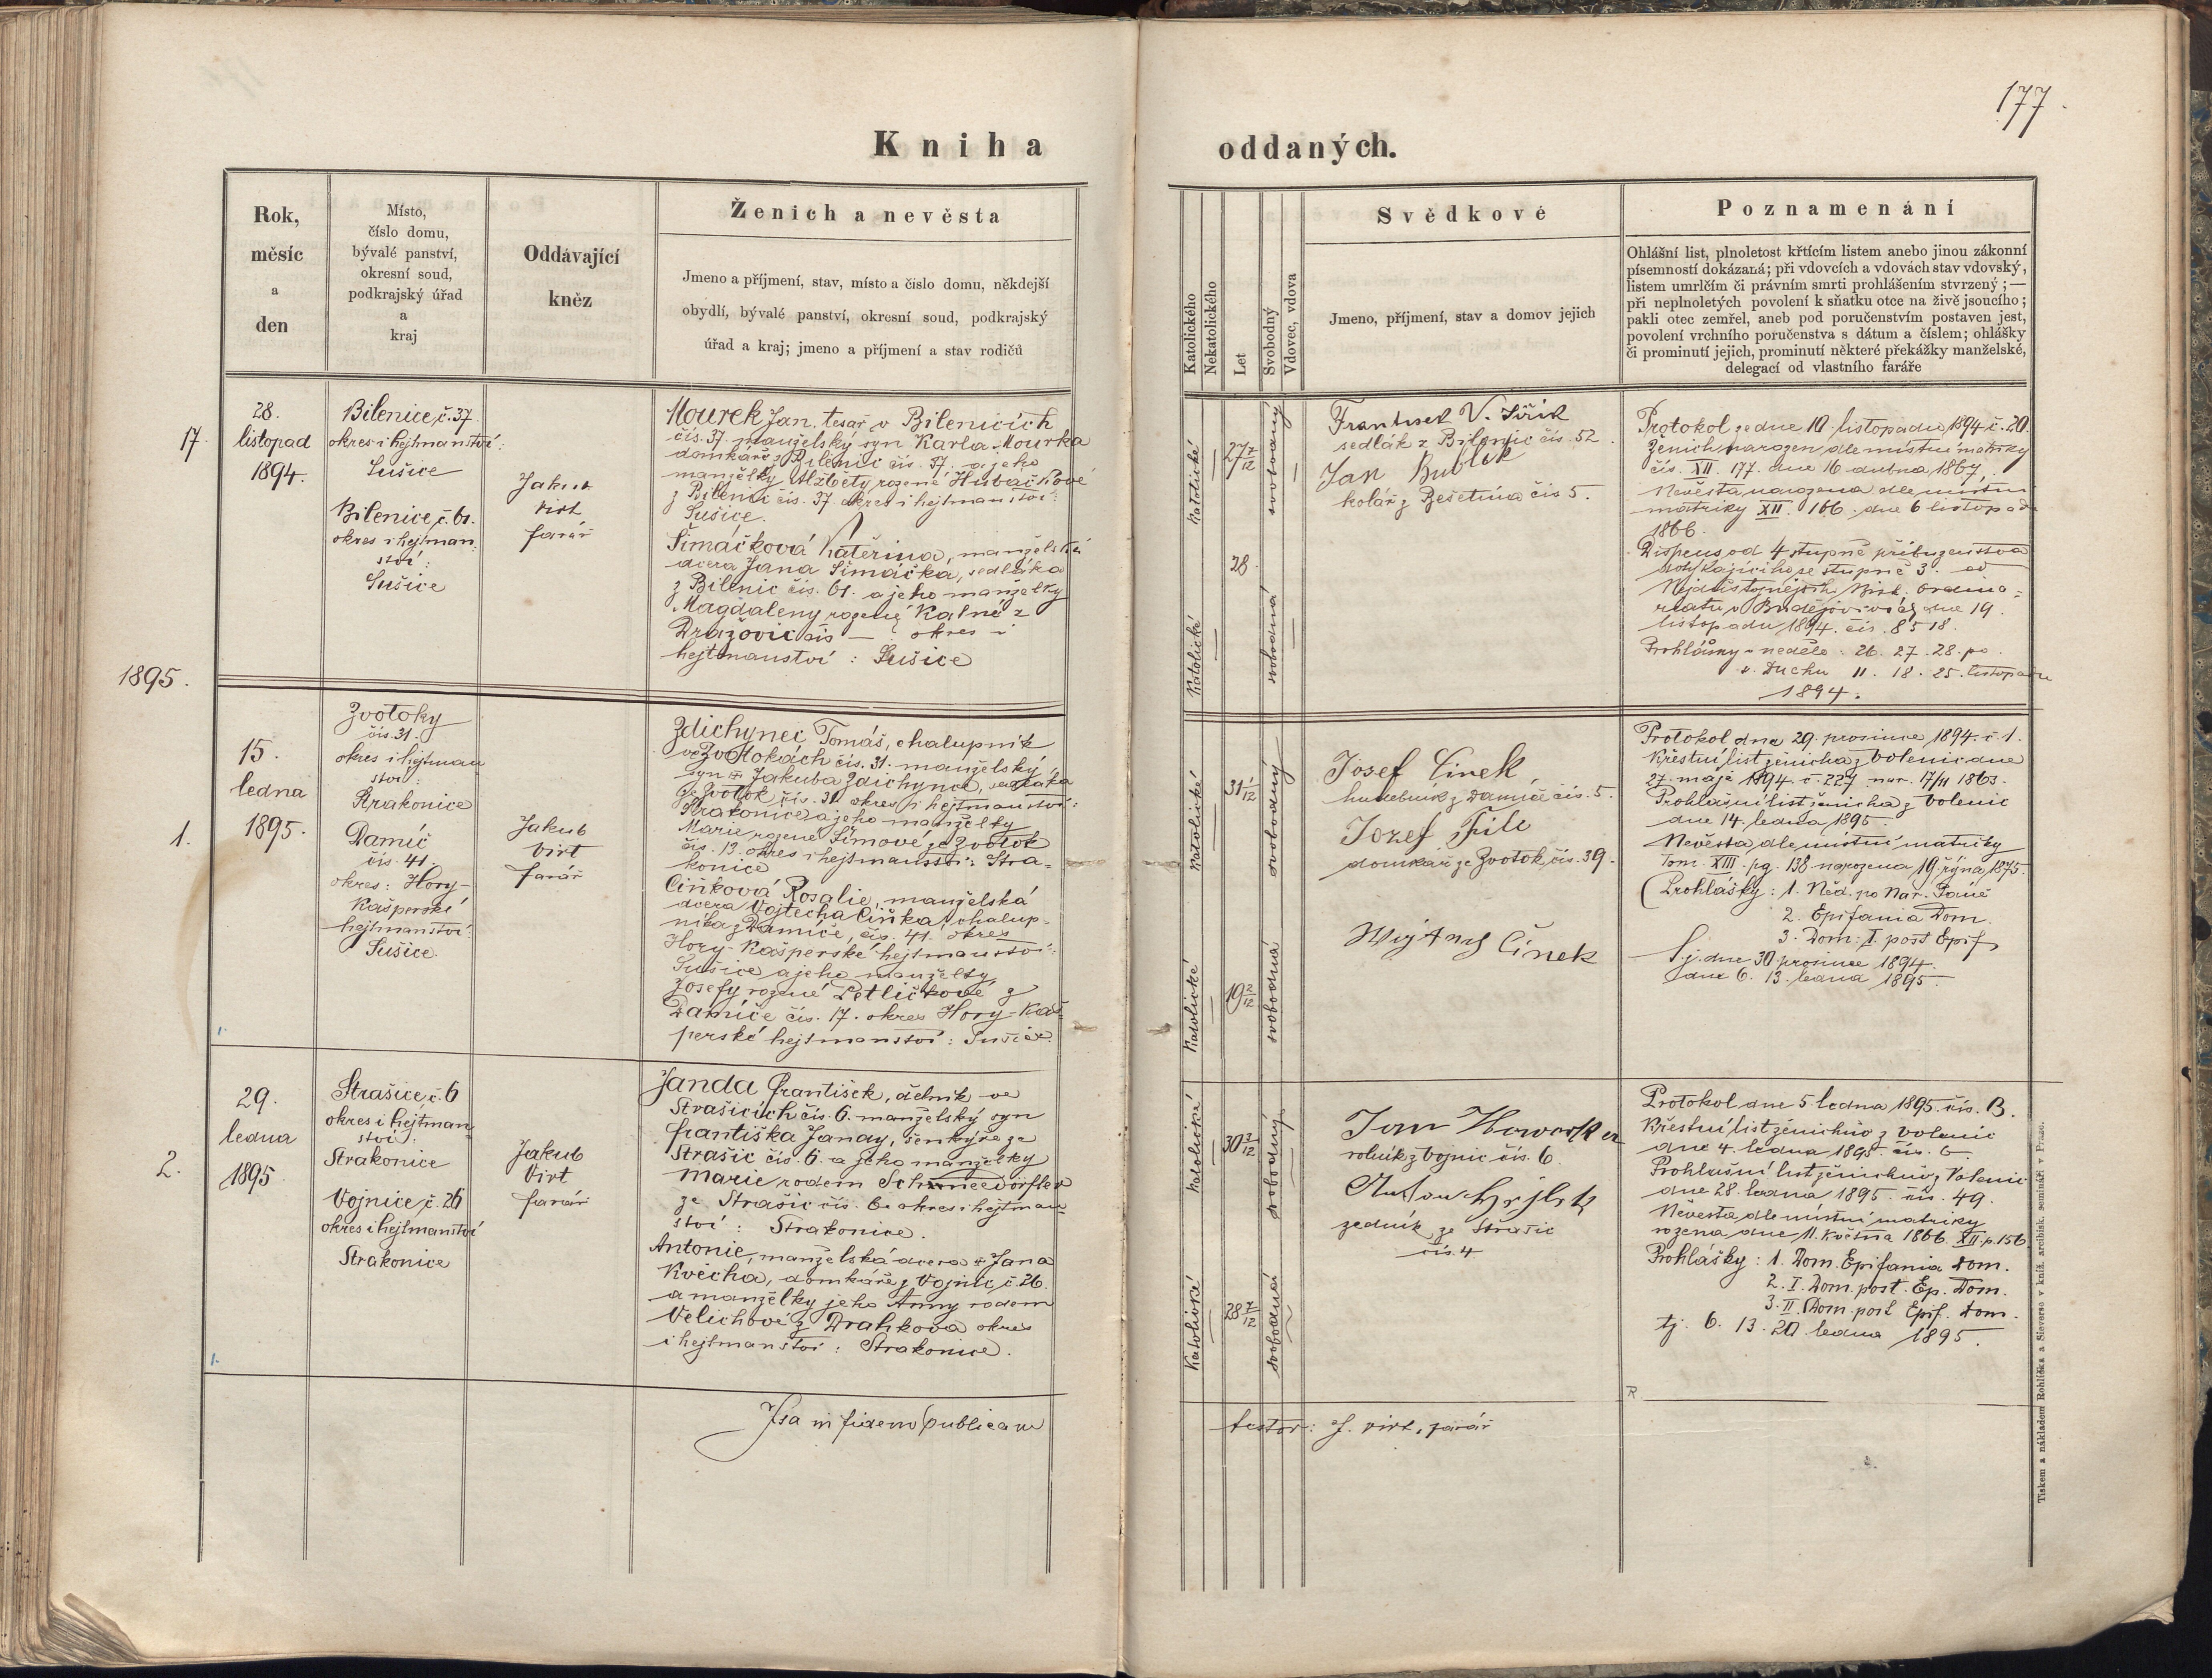 177.
Kniha oddaných.
Rok,
měsíc
a
den
Místo,
číslo domu,
bývalé panství,
okresní soud,
podkrajský úřad
a
kraj
Oddávající
kněz
Ženich a nevěsta
Jmeno a příjmení, stav, místo a číslo domu, někdejší
obydlí, bývalé panství, okresní soud, podkrajský
úřad a kraj; jmeno a příjmení a stav rodičů
Katolického
Nekatolického
Let
Svobodný
Vdovec, vdova
Svědkové
Jmeno, příjmení, stav a domov jejich
Poznamenání
Ohlášní list, plnoletost křtícím listem anebo jinou zákonní
písemností dokázaná; při vdovcích a vdovách stav vdovský,
listem umrlčím či právním smrti prohlášením stvrzený; —
při neplnoletých povolení k sňatku otce na živě jsoucího;
pakli otec zemřel, aneb pod poručenstvím postaven jest,
povolení vrchního poručenstva s dátum a číslem; ohlášky
či prominutí jejich, prominutí některé překážky manželské,
delegací od vlastního faráře
17.
28.
listopad
1894.
Bilenice, č. 37.
okres i hejtmanství:
Sušice
Bilenice, č. 61.
okres i hejtman-
ství:
Sušice
Jakub
Virt
farář
Mourek Jan, tesař v Bilenicích
čís. 37. manželský syn Karla Mourka
domkáře z Bilenic čís. 37. a jeho
manželky Alžběty rozené Hubáčkové
z Bilenic čís. 37. okres i hejtmanství:
Sušice.
Šimáčková Kateřina, manželská
dcera Jana Šimáčka, sedláka
z Bilenic čís. 61. a jeho manželky
Magdaleny rozené Kalné z
Dražovic čís — ? okres i
hejtmanství: Sušice
katolické
27 7/12
svobodný
katolické
28
svobodná
František V. Jiřík
sedlák z Bilenic čís. 52.
Jan Bublík
kolář z Zešetína čís 5.
Protokol ze dne 10 listopadu 1894 č. 20.
Ženich narozen dle místní matriky
čís. XII. 177. dne 16 dubna 1867.
Nevěsta narozena dle místní
matriky XII. 166. dne 6 listopadu
1866.
Dispens od 4 stupně příbuzenstva
dotýkajícího se stupně 3. od
Nejdůstojnějšího Bisk. Ordina-
riatu v Budějovicích dne 19.
listopadu 1894. čís. 8518.
Prohlášky v neděle: 26. 27. 28. po
sv. Duchu 11. 18. 25. listopadu
1894.
1895.
1.
15.
ledna
1895.
Zvotoky
čís. 31.
okres i hejtman
ství:
Strakonice
Damíč
čís. 41.
okres: Hory-
Kašperské
hejtmanství:
Sušice.
Jakub
Virt
farář
Zdichynec Tomáš, chalupník
ve Zvotokách čís. 31. manželský
syn Jakuba Zdichynce, sedláka
ze Zvotok čís. 31 okres i hejtmanství:
Strakonice a jeho manželky
Marie rozené Šimové ze Zvotok
čís. 13. okres i hejtmanství: Stra-
konice
Ciňková Rosalie, manželská
dcera Vojtěcha Ciňka, chalup-
níka z Damíče, čís. 41. okres
Hory-Kašperské hejtmanství:
Sušice a jeho manželky
Josefy rozené Petličkové z
Damíče čís. 17. okres Hory-Kaš-
perské hejtmanství: Sušice.
katolické
31 1/12
svobodný
katolické
19 2/12
svobodná
Josef Cinek,
hudebník z Damíče čís. 5.
Jozef File
domkář ze Zvotok čís. 39.
Cinek
Protokol dne 29. prosince 1894. č. 1.
Křestní list ženicha z Volenic dne
27. máje 1894. č. 227 nar. 17/11 1863.
Prohlašní list ženicha z Volenic
dne 14. ledna 1895.
Nevěsta dle místní matriky
Tom. XIII. pg. 138 narozena 19. října 1875.
Prohlášky: 1. Něd. po Nar. Páně
2. Epifania Dom.
3. Dom: I. post Epif.
t.j. dne 30 prosince 1894.
dne 6. 13. ledna 1895.
2.
29.
ledna
1895
Strašice, č. 6
okres i hejtman-
ství:
Strakonice
Vojnice, č. 26
okres i hejtmanství
Strakonice
Jakub
Virt
farář
Janda František, dělník ve
Strašicích čís. 6. manželský syn
Františka Jandy, šenkýře ze
Strašic čís. 6. a jeho manželky
Marie rodem Schneedörfler
ze Strašic čís. 6. okres i hejtman
ství: Strakonice.
Antonie, manželská dcera Jana
Kvěcha, domkáře z Vojnic, č. 26.
a manželky jeho Anny rodem
Velichové z Drahkova okres
i hejtmanství: Strakonice.
katolické
30 3/12
svobodný
katolické
28 7/12
svobodná
Jan
rolník z Vojnic čís. 6.
zedník ze Strašic
čís. 4
Protokol dne 5 ledna 1895. čís. B.
Křestní list ženichův z Volenic
dne 4. ledna 1895. čís. 6
Prohlašní list ženichův z Volenic
dne 28. ledna 1895. čís. 49.
Nevěsta dle místní matriky
rozena dne 11. května 1866. XII p. 156
Prohlášky: 1. Dom. Epifania Dom.
2. I. Dom. post. Ep. Dom.
3. II. Dom. post Epif. Dom.
tj. 6. 13. 20. ledna 1895.
Ita in fidem publicam
testor: J. Virt, farář
Tiskem a nákladem Rohlíčka a Sieverse v kníž. arcibisk. semináři v Praze.